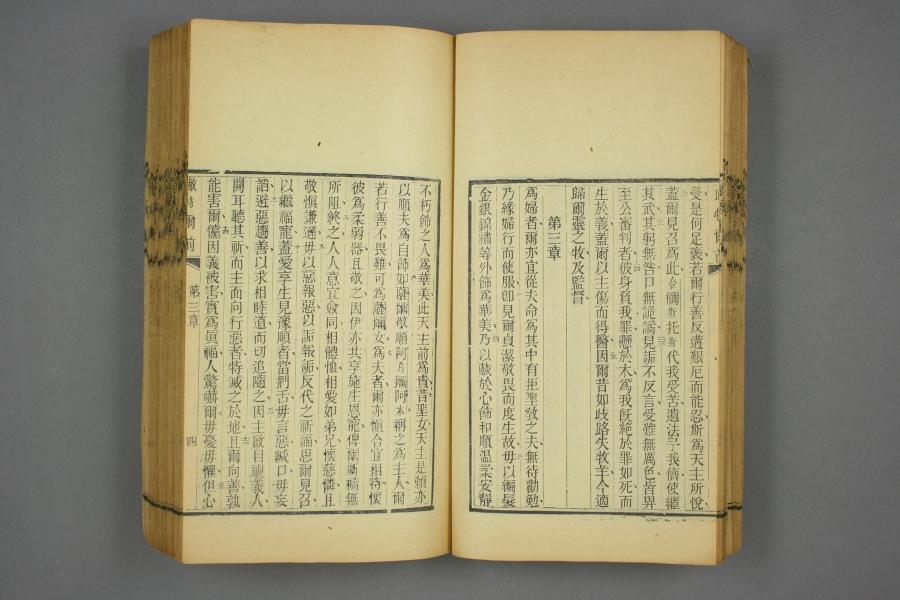 受是何足褒若爾行善反遘艱厄而能忍斯爲天主所悅
蓋爾見召爲此合爾斯托斯代我受苦遺法於我儕使繼
其武其躬無咎口無詭譎見詬不反言受難無厲色皆畀
至公審判者彼身負我罪懸於木爲我旣絕於罪如死而
生於義蓋爾以主傷而得醫因爾昔如歧路失牧羊今適
歸爾靈之牧及監督
第三章
爲婦者爾亦宜從夫命爲其中有拒聖敎之夫無待勸勉
乃緣婦行而使服卽見爾貞潔敬畏而度生故毋以編髮
金銀錦繡等外飾爲華美乃以藏於心飾和順溫柔安靜
不朽飾之人爲華美此天主前爲貴昔聖女天主是賴亦
以順夫爲自飾如薩爾敬順阿爾阿木稱之爲主人爾
若行善不畏難可爲薩爾女爲夫者爾亦愼合宜相待懷
彼爲柔弱器且敬之因伊亦共享施生恩寵俾爾祈禱無
所阻終之人人意宜僉同相體恤相愛如弟兄懷慈憐且
敬愼謙遜毋以惡報惡以詬報詬反代之祈福思爾見召
以繼福寵蓋愛享生見豫順者當捫舌毋言惡緘口毋妄
謟避惡趨善以求相睦道而切追隨之因主啟目聽義人
開耳聽其祈而主面向行惡者特滅之於地且爾向善孰
能害爾儻因義被害實爲眞福人驚嚇爾毋憂毋懼但心
爾前
第三章
四